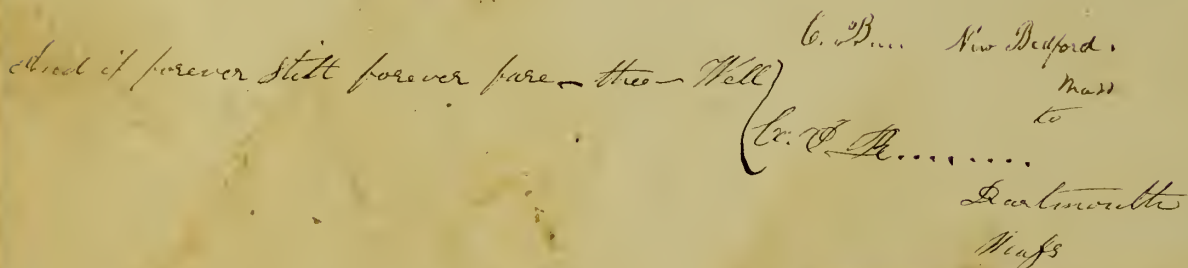 And if forever still forever fare-thee-Well
C. B... New Bedford.
Mass
to
R........
Dartmouth
Mass